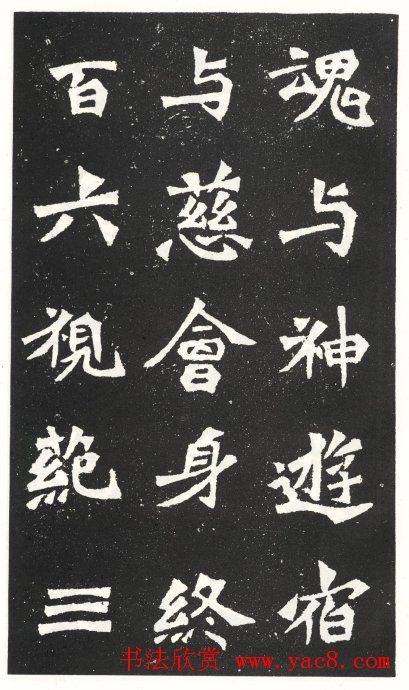 魂与神遊宿
与慈會身終
百六視三
书法欣赏 www.yac8.com